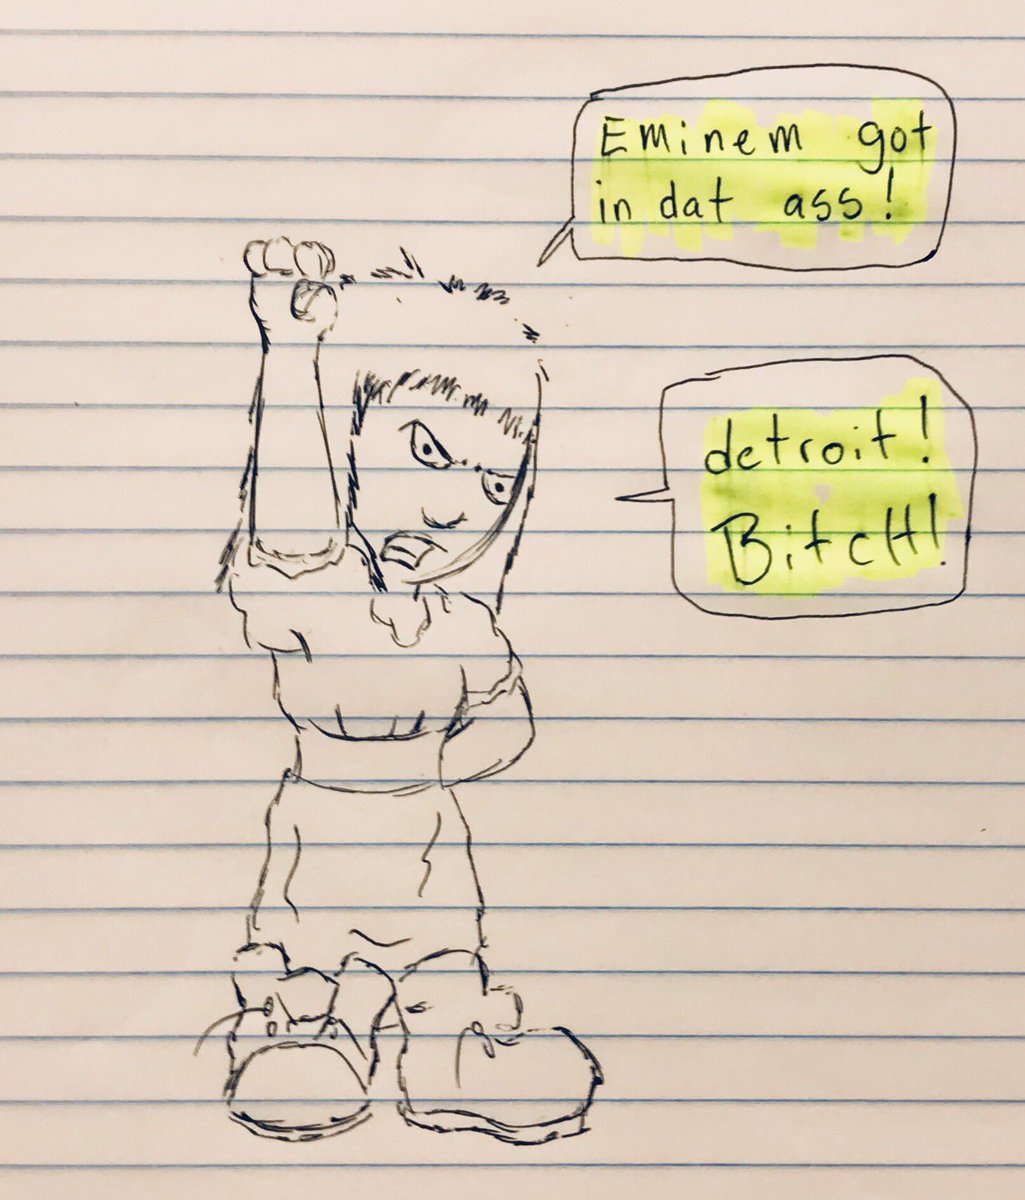 Eminem got
in dat ass!
detroit!
BitcH!